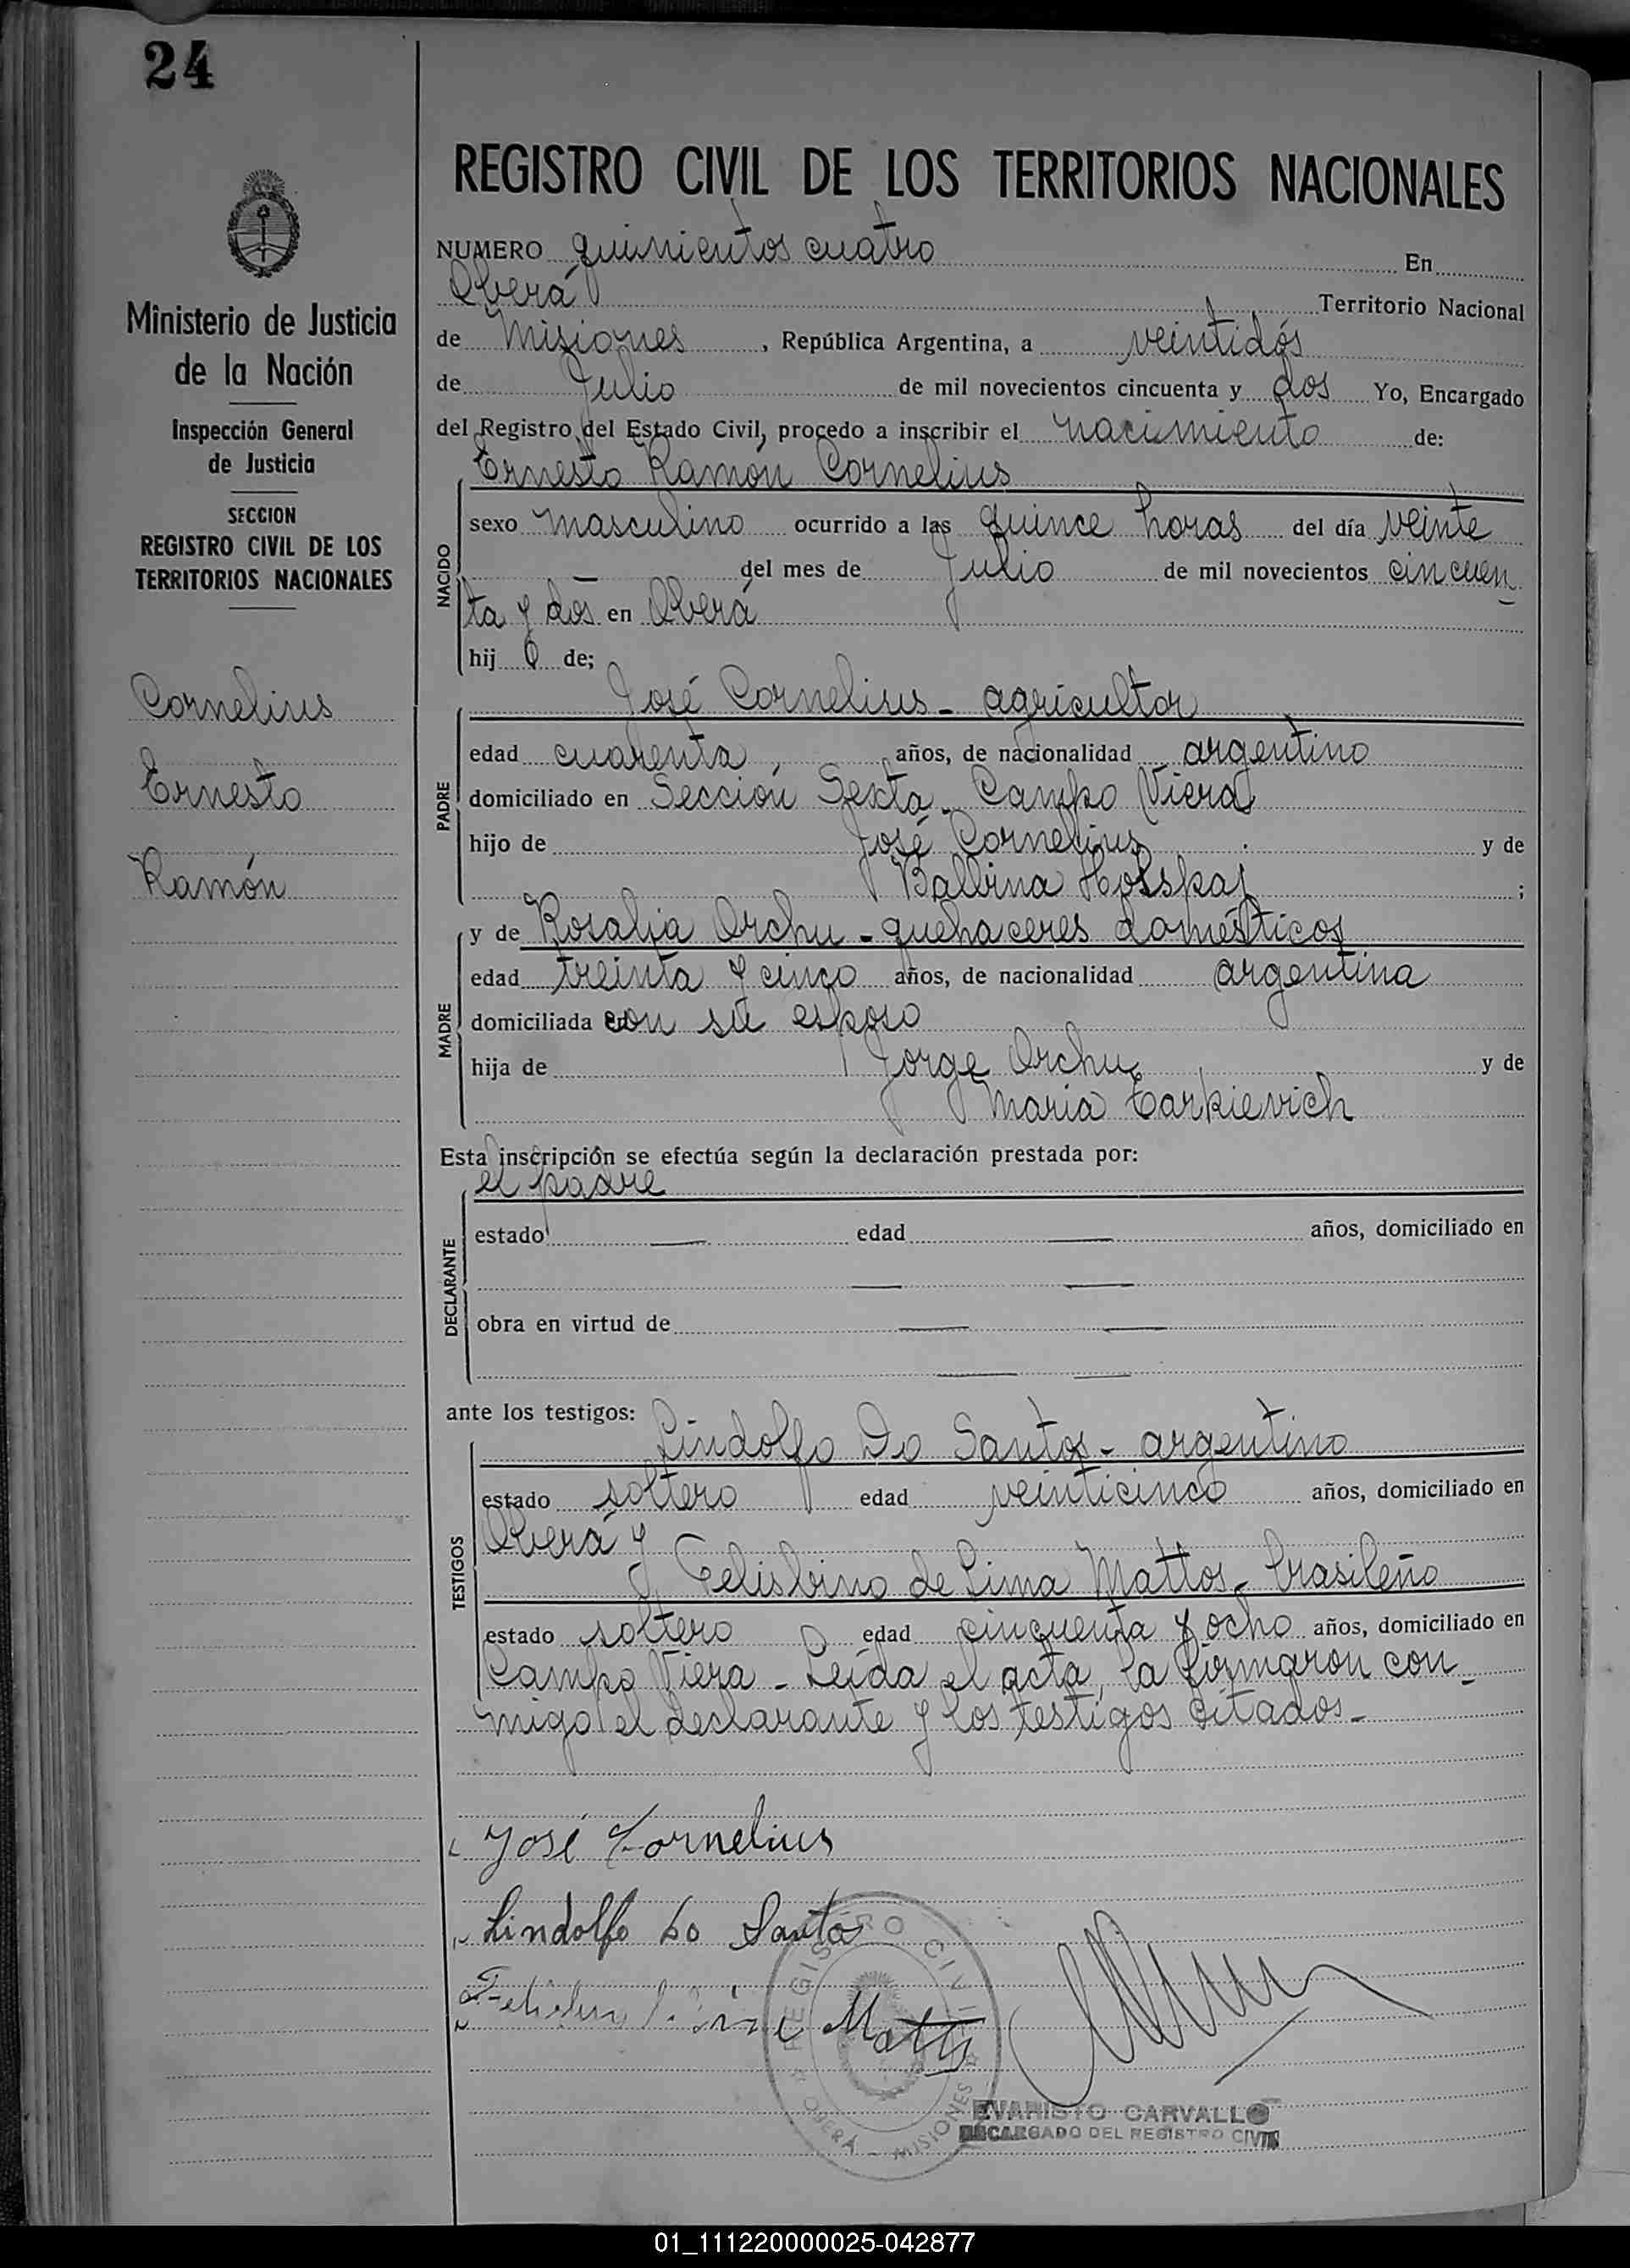 24
REGISTRO CIVIL DE LOS TERRITORIOS NACIONALES
Ministerio de Justicia
de la Nación
Inspección General
de Justicia
SECCION
REGISTRO CIVIL DE LOS
TERRITORIOS NACIONALES
Cornelius
Ernesto
Ramón
NUMERO quinientos cuatro En
Oberá Territorio Nacional
de Misiones, República Argentina, a veintidós
de Julio de mil novecientos cincuenta y dos Yo, Encargado
del Registro del Estado Civil, procedo a inscribir el nacimiento de:
Ernesto Ramón Cornelius
NACIDO
sexo masculino ocurrido a las quince horas del día veinte
— del mes de Julio de mil novecientos cincuen-
ta y dos en Oberá
hijo de;
José Cornelius - agricultor
PADRE
edad cuarenta, años, de nacionalidad argentino
domiciliado en Sección Sexta - Campo Viera
hijo de José Cornelius y de
Balbina ;
y de Rosalia Orchu - quehaceres domésticos
MADRE
edad treinta y cinco años, de nacionalidad argentina
domiciliada con su esposo
hija de Jorge Orchu y de
Maria Tarkievich
Esta inscripción se efectúa según la declaración prestada por:
el padre
DECLARANTE
estado — edad — años, domiciliado en
— —
obra en virtud de — —
— —
ante los testigos:
Lindolfo Do Santos - argentino
TESTIGOS
estado soltero edad veinticinco años, domiciliado en
Oberá y
Felisbino de Lima Mattos - brasileño
estado soltero edad cincuenta y ocho años, domiciliado en
Campo Viera - Leída el acta, la firmaron con-
migo el declarante y los testigos citados -
José Cornelius
Lindolfo do Santo
Mattos
REGISTRO CIVIL
OBERÁ - MISIONES
EVARISTO CARVALLO
ENCARGADO DEL REGISTRO CIVIL
01_111220000025-042877